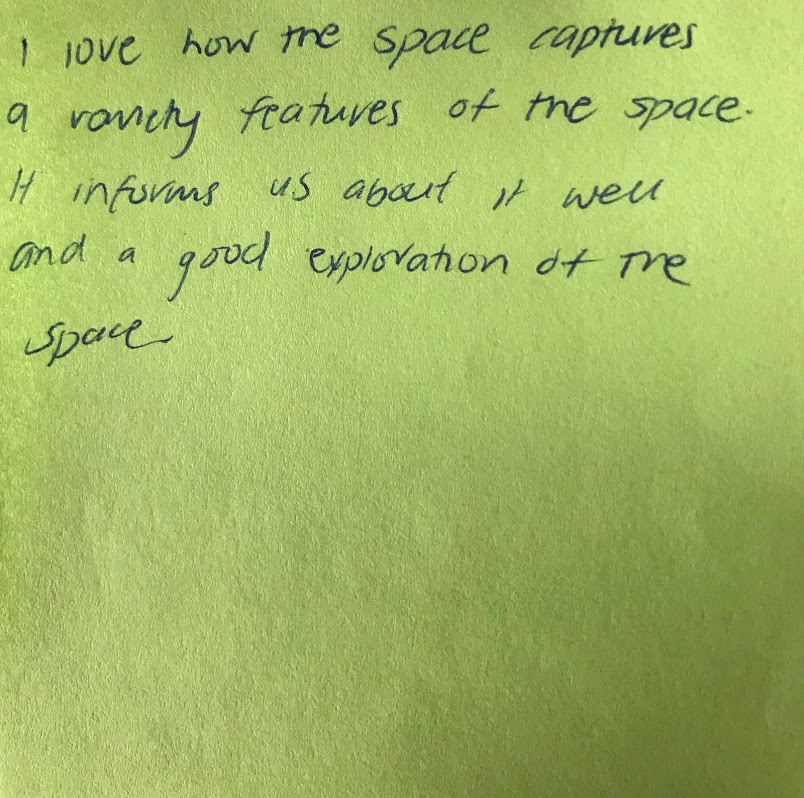 I love how the space captures
a variety features of the space.
It informs us about it well
and a good exploration of the
space